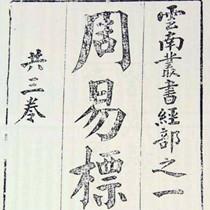 雲南叢書經部之一
周易標
共三卷